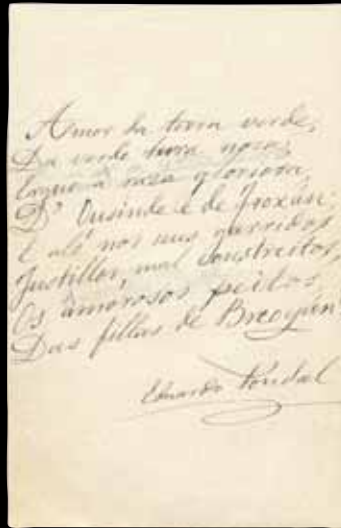 Amor da terra verde,
Da verde terra nosa,
a raza gloriosa,
D' Ousinde e de Froxán;
E aló nos seus garridos
Justillos, mal constreitos,
Os amorosos peitos
Das fillas de Breogán.
Eduardo Pondal